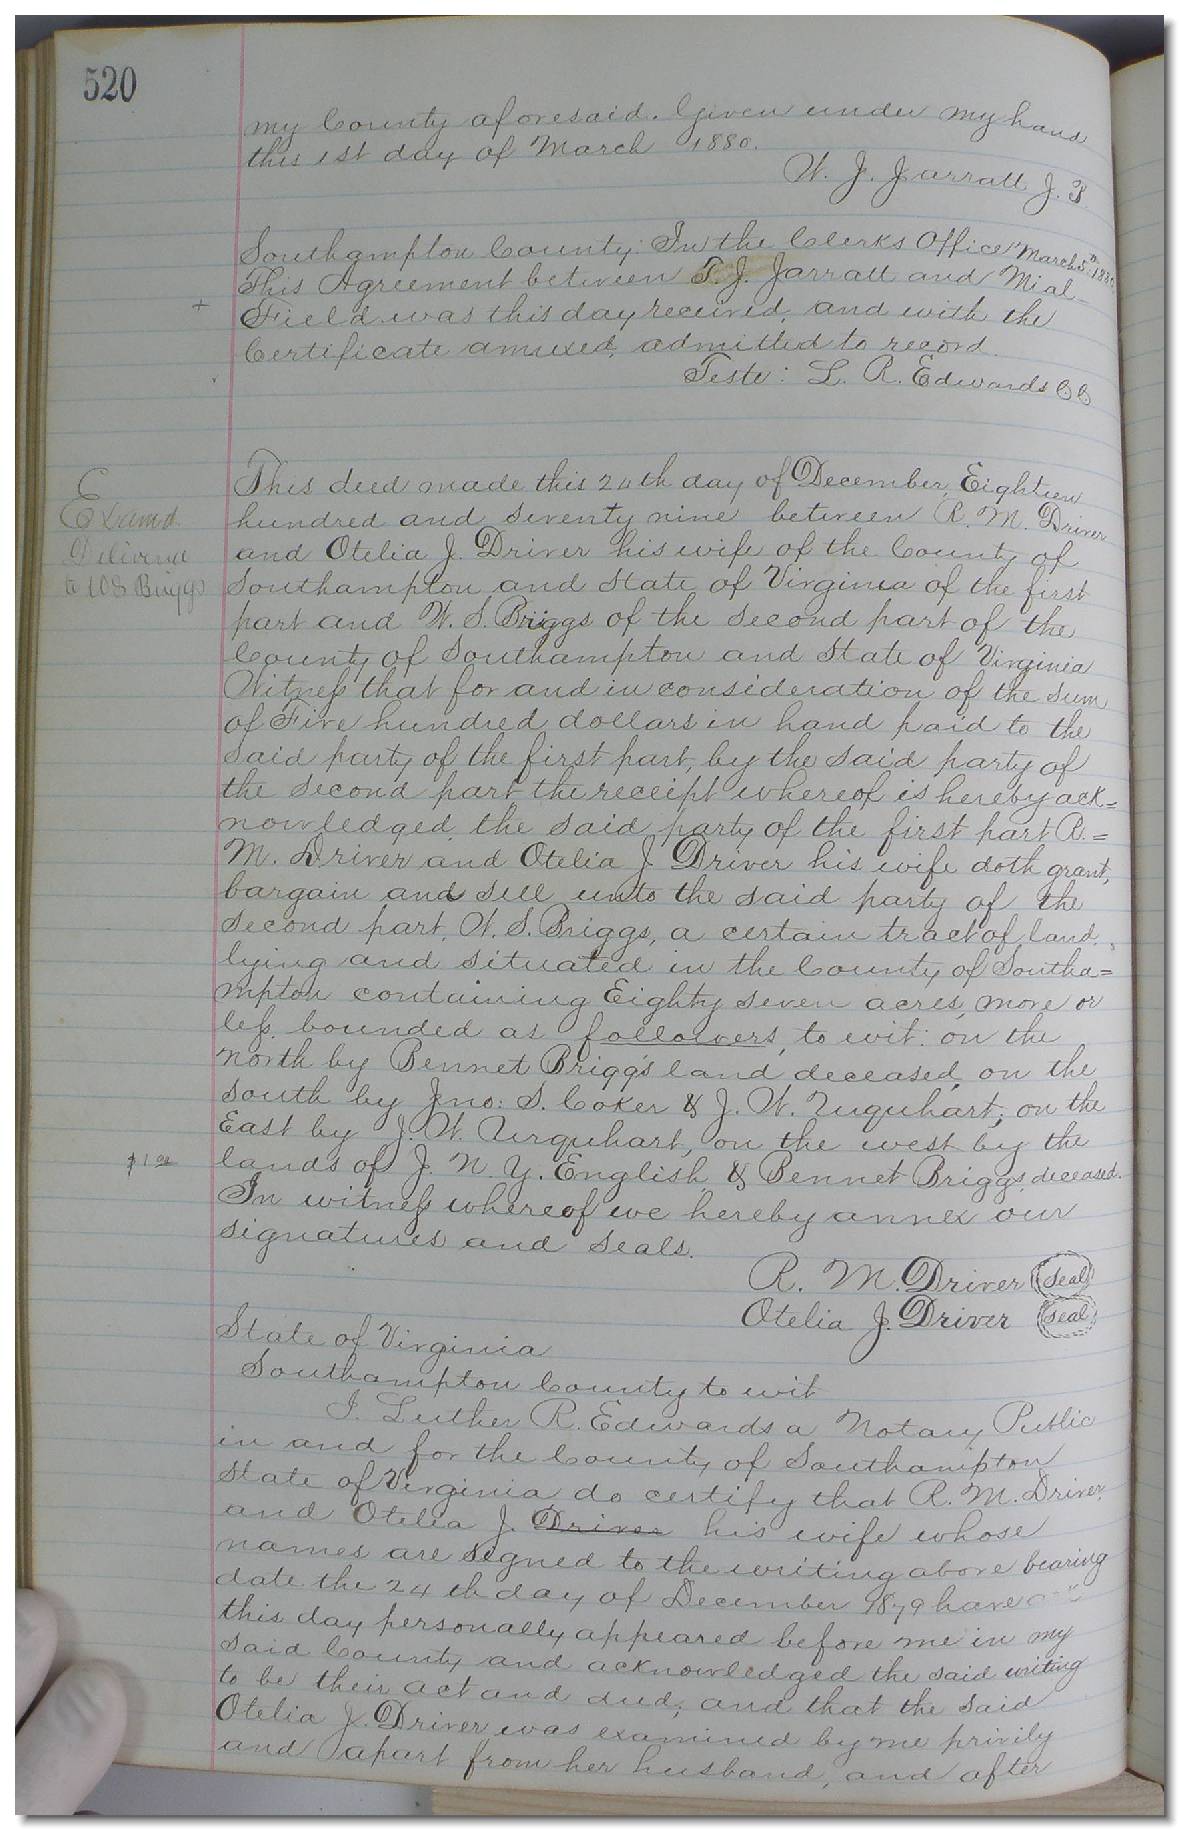 520
my County aforesaid. Given under my hand
this 1st day of March 1880.
W. J. Jarratt J. P.
Southampton County: In the Clerks Office March 5th 1880
This Agreement between T. J. Jarratt and Mial
+
Field was this day received, and with the
Certificate annexed, admitted to record.
Teste: L. R. Edwards CC
This deed made this 24th day of December, Eighteen
Examd.
hundred and seventy nine between R. M. Driver
Delivered
and Otelia J. Driver his wife of the County of
to W S Briggs
Southampton and State of Virginia of the first
part and W. S. Briggs of the second part of the
County of Southampton and State of Virginia
Witness that for and in consideration of the sum
of Five hundred dollars in hand paid to the
said party of the first part, by the said party of
the second part the receipt whereof is hereby ack=
nowledged the said party of the first part R.=
M. Driver and Otelia J. Driver his wife doth grant,
bargain and sell unto the said party of the
second part, W. S. Briggs, a certain tract of land
lying and situated in the County of Southa=
mpton containing Eighty seven acres, more or
less bounded as followers, to wit: on the
north by Bennet Brigg's land deceased, on the
south by Jno: S. Coker & J. W. Urquhart; on the
East by J. W. Urquhart, on the west by the
$1.00
lands of J. N. Y. English, & Bennet Briggs, deceased.
In witness whereof we hereby annex our
signatures and seals.
R. M. Driver (Seal)
Otelia J. Driver (Seal)
State of Virginia
Southampton County to wit
I. Luther R. Edwards a Notary Public
in and for the County of Southampton
State of Virginia do certify that R. M. Driver
and Otelia J. Driver his wife whose
names are signed to the writing above bearing
date the 24th day of December 1879 have
this day personally appeared before me in my
said County and acknowledged the said writing
to be their act and deed, and that the said
Otelia J. Driver was examined by me privily
and apart from her husband, and after